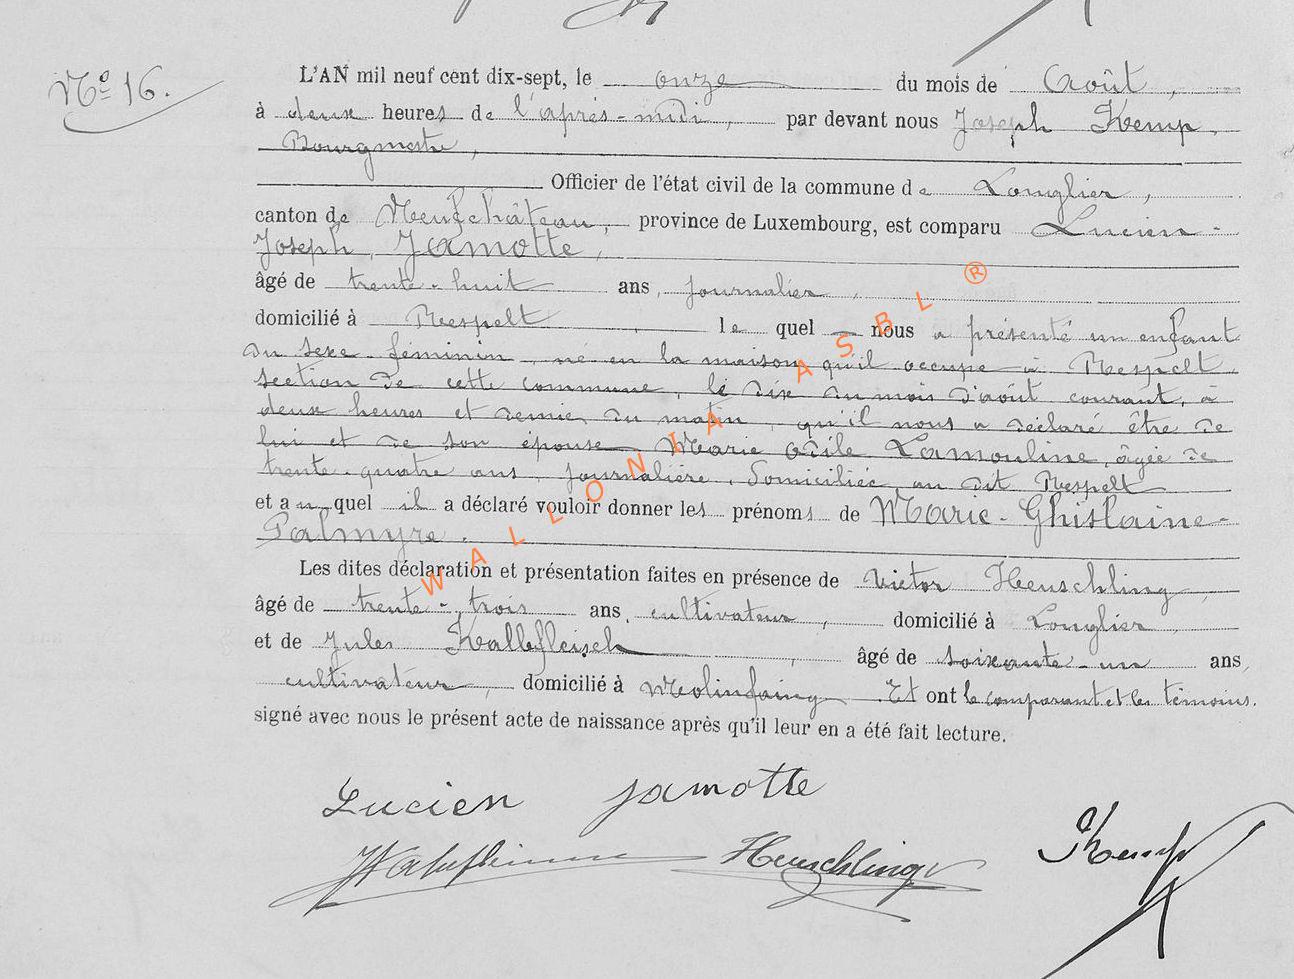 Nº 16.
L'AN mil neuf cent dix-sept, le onze du mois de Août,
à deux heures de l'après-midi, par devant nous Joseph Kemp,
Bourgmestre,
Officier de l'état civil de la commune de Longlier,
canton de Neufchâteau, province de Luxembourg, est comparu Lucien-
Joseph Jamotte,
âgé de trente-huit ans, journalier,
domicilié à Respelt le quel nous a présenté un enfant
du sexe féminin né en la maison qu'il occupe à Respelt,
section de cette commune, le dix du mois d'août courant, à
deux heures et demie du matin, qu'il nous a déclaré être de
lui et de son épouse Marie Odile Lamouline, âgée de
trente-quatre ans, journalière, domiciliée au dit Respelt
et au quel il a déclaré vouloir donner les prénoms de Marie-Ghislaine-
Palmyre.
Les dites déclaration et présentation faites en présence de Victor Heuschling,
âgé de trente-trois ans, cultivateur, domicilié à Longlier
et de Jules Kalbfleisch, âgé de soixante-un ans,
cultivateur, domicilié à Molinfaing. Et ont le comparant et les témoins.
signé avec nous le présent acte de naissance après qu'il leur en a été fait lecture.
Lucien Jamotte
Heuschling
Kemp
WALLONIA ASBL ®